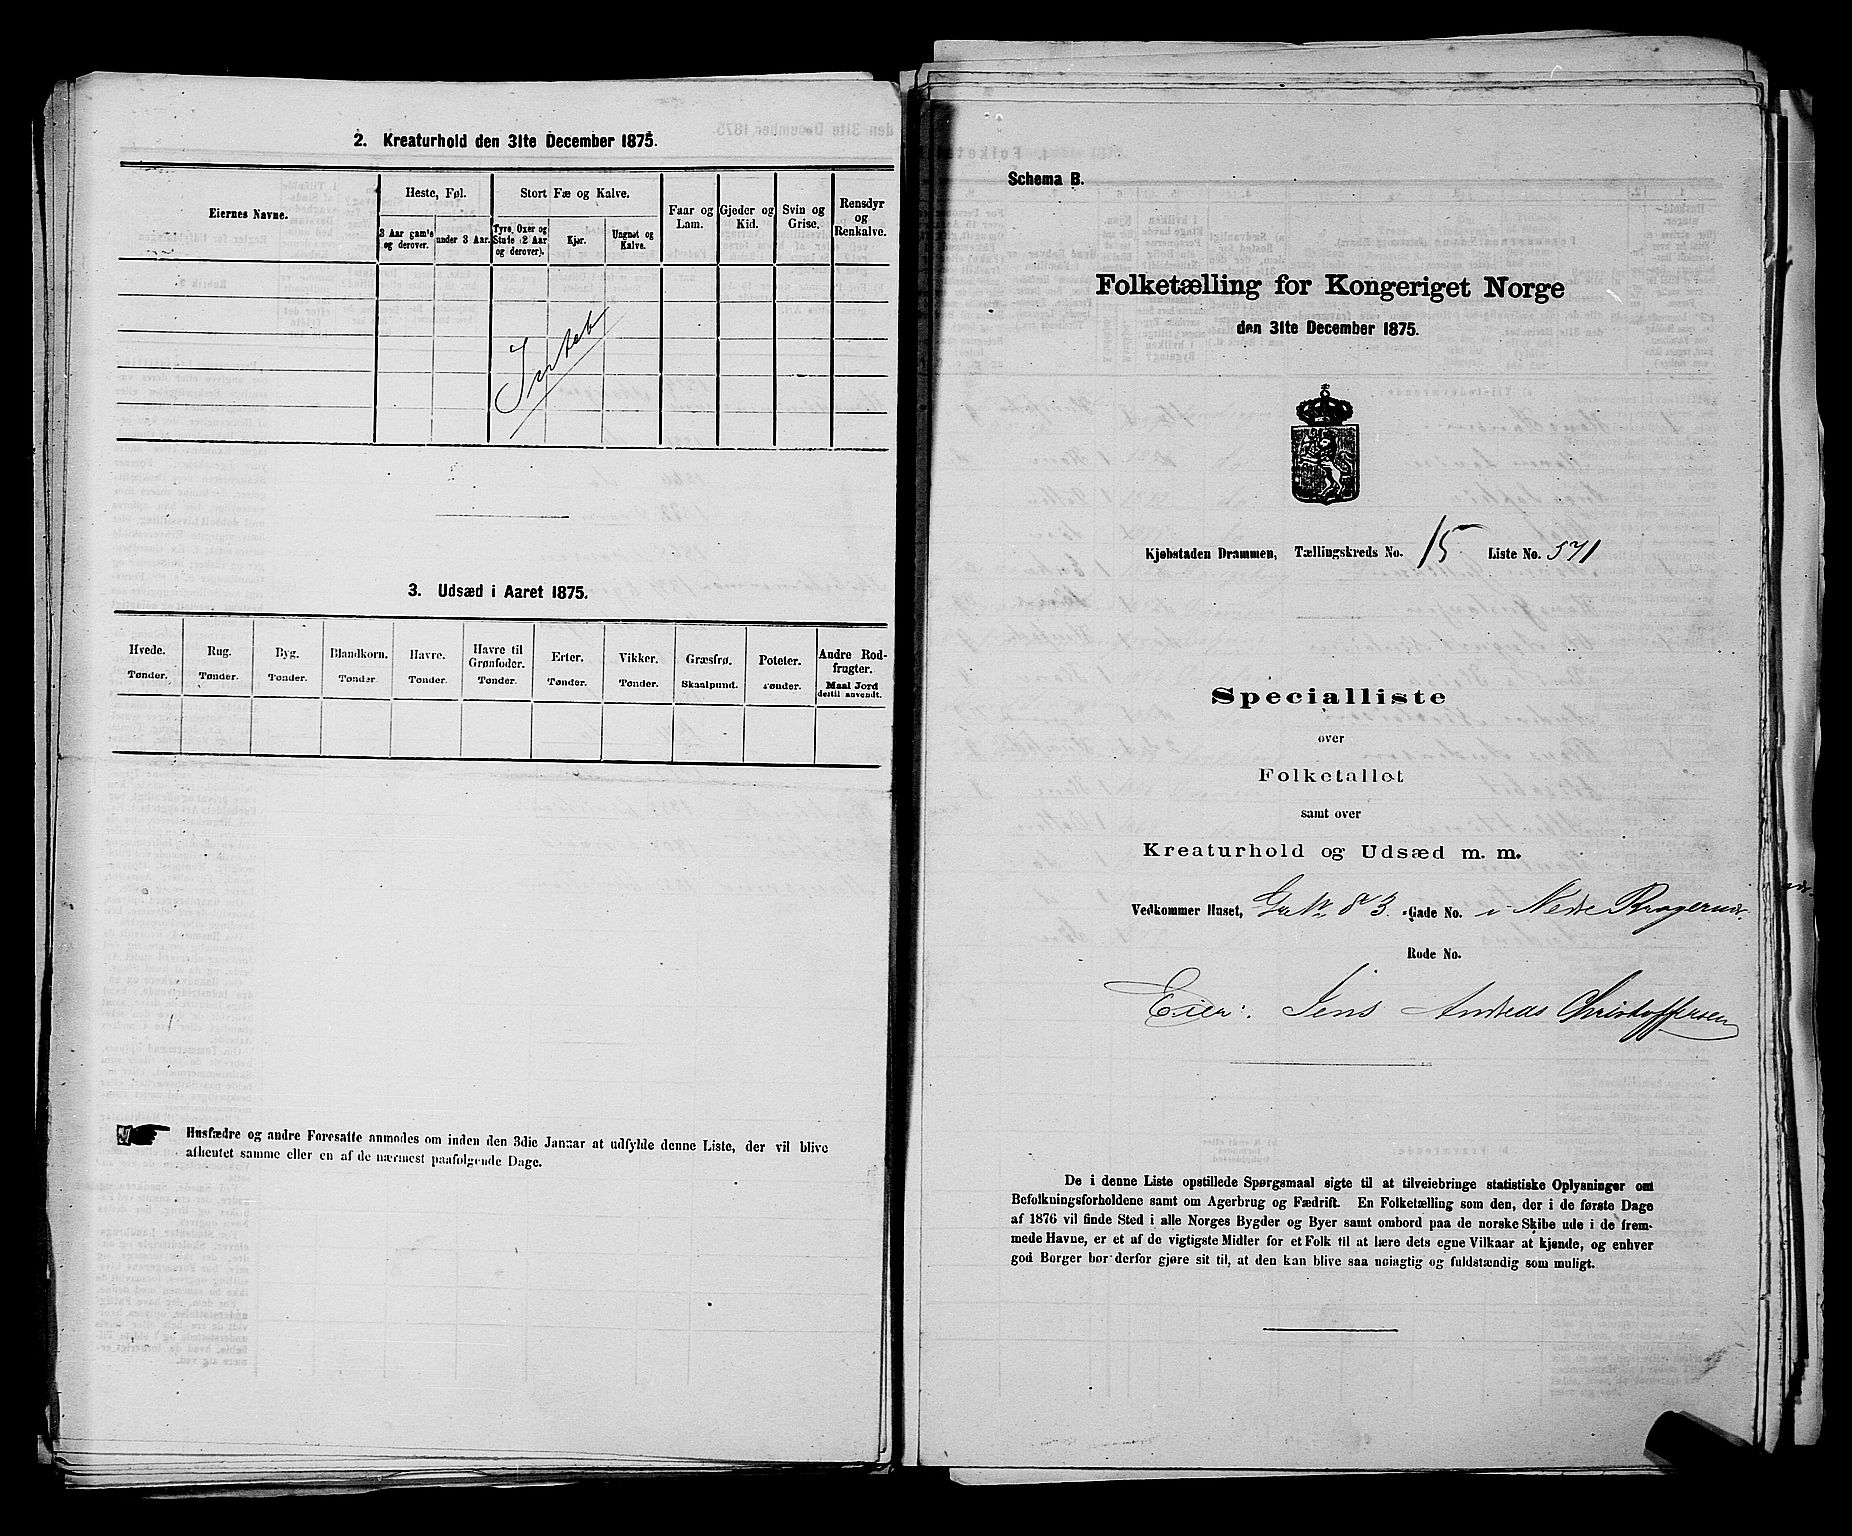 2. Kreaturhold den 31te December 1875.
Eiernes Navne.
Heste, Føl.
Stort Fæ og Kalve.
Faar og Lam.
Gjeder og Kid.
Svin og Grise.
Rensdyr og Renkalve.
3 Aar gam'e og derover.
under 3 Aar.
Tyre, Oxer og Stude (2 Aar og derover).
Kjør.
Ungnøt og Kalve.
Intet
3. Udsæd i Aaret 1875.
Hvede. Tønder.
Rug. Tønder.
Byg. Tønder.
Blandkorn. Tønder
Havre. Tønder.
Havre til Grønfoder. Tønder.
Erter. Tønder.
Vikker. Tønder.
Græsfrø. Skaalpund.
Poteter. Tønder.
Andre Rodfrugter. Maal Jord destil anvendt.
Husfædre og andre Foresatte anmodes om inden den 3die Januar at udfylde denne Liste, der vil blive
afhentet samme eller en af de nærmest paafølgende Dage.
Schema B.
Folketælling for Kongeriget Norge
den 31te December 1875.
Kjøbstaden Drammen, Tællingskreds No. 15 Liste No. 571
Specialliste
over
Folketallet
samt over
Kreaturhold og Udsæd m. m.
Vedkommer Huset, Gr No 83 Gade No. i Nedre Bragernæs
Rode No.
Eier: Jens Andreas Christoffersen
De i denne Liste opstillede Spørgsmaal sigte til at tilveiebringe statistiske Oplysninger om
Befolkningsforholdene samt om Agerbrug og Fædrift. En Folketælling som den, der i de første Dage
af 1876 vil finde Sted i alle Norges Bygder og Byer samt ombord paa de norske Skibe ude i de frem-
mede Havne, er et af de vigtigste Midler for et Folk til at lære dets egne Vilkaar at kjende, og enhver
god Borger bør derfor gjøre sit til, at den kan blive saa nøiagtig og fuldstændig som muligt.